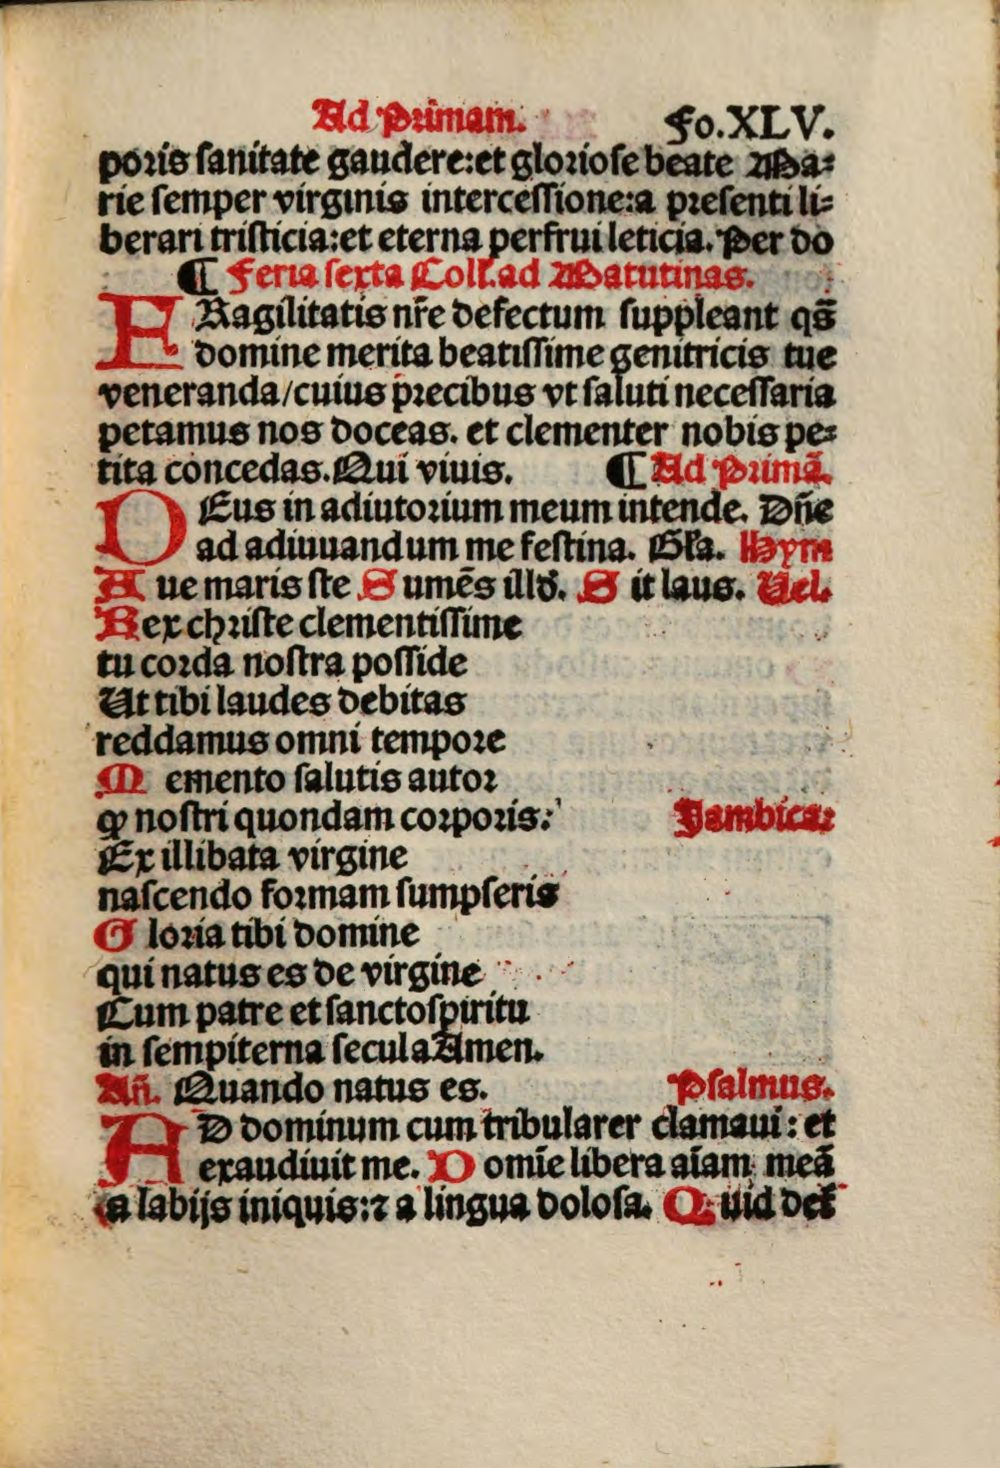 Ad Primam. Fo.XLV.
poris sanitate gaudere:et gloriose beate Ma⸗
rie semper virginis intercessione:a presenti li⸗
berari tristicia:et eterna perfrui leticia. Per do
¶ Feria sexta Coll'.ad Matutinas.
FRagilitatis nr̄e defectum suppleant qs̄
domine merita beatissime genitricis tue
veneranda/cuius precibus vt saluti necessaria
petamus nos doceas. et clementer nobis pe⸗
tita concedas. Qui viuis. ¶ Ad Primā.
DEus in adiutorium meum intende. Dn̄e
ad adiuuandum me festina. Gl'a. Hym
Aue maris ste Sumēs illd'. Sit laus. Uel.
Rex christe clementissime
tu corda nostra posside
Ut tibi laudes debitas
reddamus omni tempore
Memento salutis autor
ꝙ nostri quondam corporis:
Jambica:
Ex illibata virgine
nascendo formam sumpseris
Gloria tibi domine
qui natus es de virgine
Cum patre et sanctospiritu
in sempiterna secula Amen.
Añ. Quando natus es. Psalmus.
AD dominum cum tribularer clamaui: et
exaudiuit me. Domīe libera aīam meā
a labijs iniquis:⁊ a lingua dolosa. Quid det'